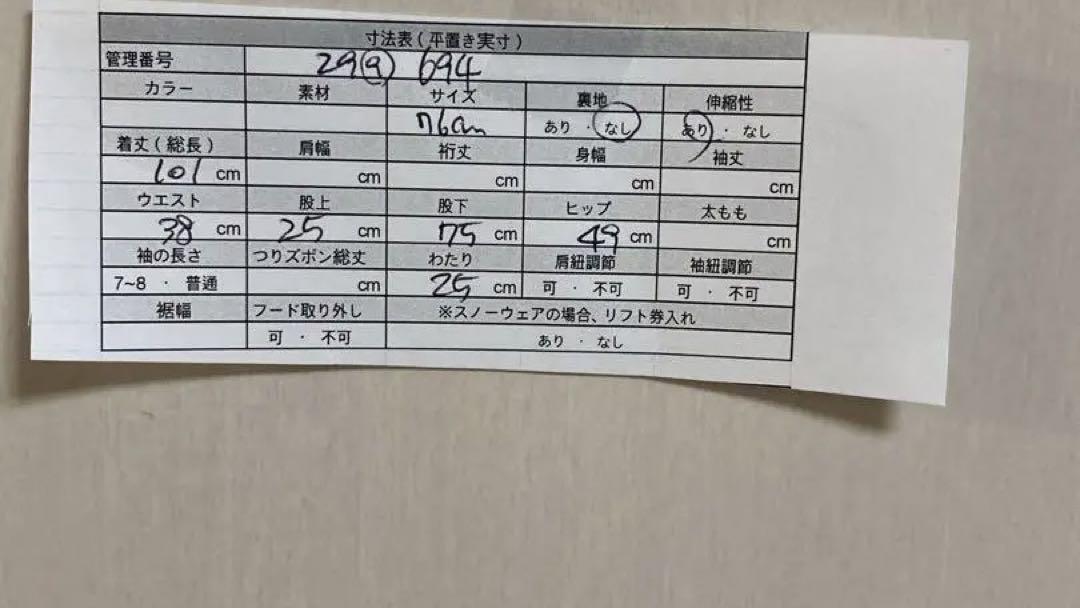 寸法表(平置き実寸)
管理番号 29(9) 694
カラー 素材 サイズ 裏地 伸縮性
76cm あり ・ なし あり ・ なし
着丈(総長) 肩幅 裄丈 身幅 袖丈
101 cm cm cm cm cm
ウエスト 股上 股下 ヒップ 太もも
38 cm 25 cm 75 cm 49 cm cm
袖の長さ つりズボン総丈 わたり 肩紐調節 袖紐調節
7~8 ・ 普通 cm 25 cm 可 ・ 不可 可 ・ 不可
裾幅 フード取り外し ※スノーウェアの場合、リフト券入れ
可 ・ 不可 あり ・ なし